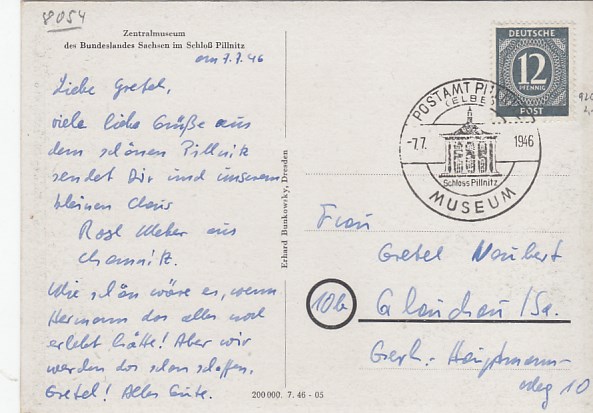 8054
Zentralmuseum
des Bundeslandes Sachsen im Schloß Pillnitz
am 7.7.46
Liebe Gretel,
viele liebe Grüße aus
dem schönen Pillnitz
sendet Dir und unserem
kleinen Claus
Rosl Weber aus
Chemnitz.
Wie schön wäre es, wenn
Hermann das alles noch
erlebt hätte! Aber wir
werden das schon schaffen,
Gretel! Alles Gute.
Erhard Bunkowsky, Dresden
200000. 7. 46 - 05
DEUTSCHE
12
PFENNIG
POST
POSTAMT
(ELBE)
-7.7. 1946
Schloss Pillnitz
MUSEUM
Frau
Gretel Naubert
10b Glauchau /Sa.
Gerh.-Hauptmann-
weg 10